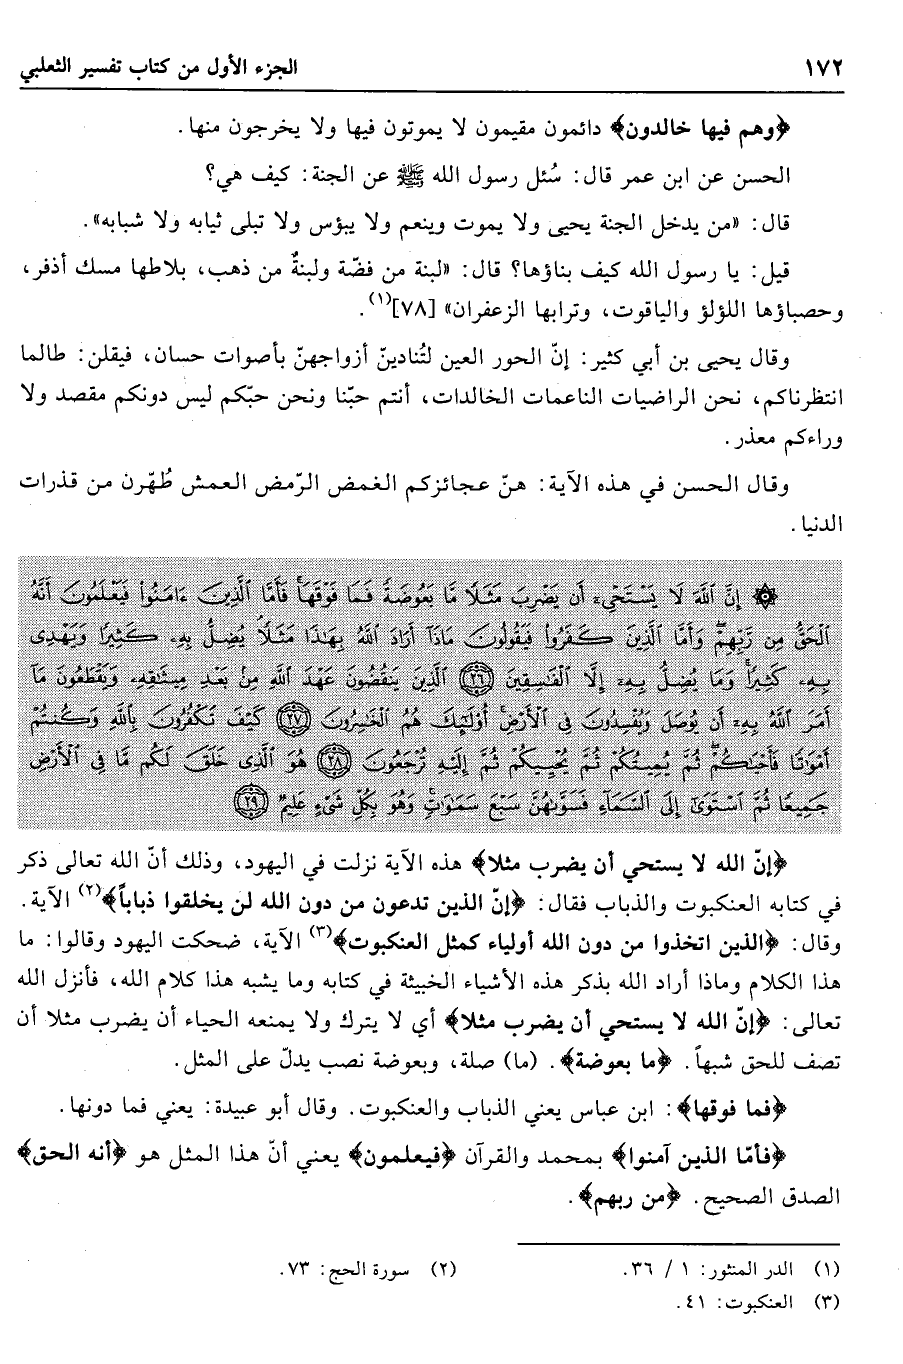 ١٧٢ الجزء الأول من كتاب تفسير الثعلبي
﴿وهم فيها خالدون﴾ دائمون مقيمون لا يموتون فيها ولا يخرجون منها.
الحسن عن ابن عمر قال: سُئل رسول الله ﷺ عن الجنة: كيف هي؟
قال: «من يدخل الجنة يحيى ولا يموت وينعم ولا يبؤس ولا تبلى ثيابه ولا شبابه».
قيل: يا رسول الله كيف بناؤها؟ قال: «لبنة من فضّة ولبنةٌ من ذهب، بلاطها مسك أذفر،
وحصباؤها اللؤلؤ والياقوت، وترابها الزعفران» [٧٨](١).
وقال يحيى بن أبي كثير: إنّ الحور العين لتُنادينّ أزواجهنّ بأصوات حسان، فيقلن: طالما
انتظرناكم، نحن الراضيات الناعمات الخالدات، أنتم حبّنا ونحن حبّكم ليس دونكم مقصد ولا
وراءكم معذر.
وقال الحسن في هذه الآية: هنّ عجائزكم الغمض الرّمض العمش طُهّرن من قذرات
الدنيا.
۞ إِنَّ ٱللَّهَ لَا يَسْتَحْيِۦٓ أَن يَضْرِبَ مَثَلًا مَّا بَعُوضَةً فَمَا فَوْقَهَا ۚ فَأَمَّا ٱلَّذِينَ ءَامَنُوا۟ فَيَعْلَمُونَ أَنَّهُ
ٱلْحَقُّ مِن رَّبِّهِمْ ۖ وَأَمَّا ٱلَّذِينَ كَفَرُوا۟ فَيَقُولُونَ مَاذَآ أَرَادَ ٱللَّهُ بِهَٰذَا مَثَلًا ۘ يُضِلُّ بِهِۦ كَثِيرًا وَيَهْدِى
بِهِۦ كَثِيرًا ۚ وَمَا يُضِلُّ بِهِۦٓ إِلَّا ٱلْفَٰسِقِينَ ٢٦ ٱلَّذِينَ يَنقُضُونَ عَهْدَ ٱللَّهِ مِنۢ بَعْدِ مِيثَٰقِهِۦ وَيَقْطَعُونَ مَآ
أَمَرَ ٱللَّهُ بِهِۦٓ أَن يُوصَلَ وَيُفْسِدُونَ فِى ٱلْأَرْضِ ۚ أُو۟لَٰٓئِكَ هُمُ ٱلْخَٰسِرُونَ ٢٧ كَيْفَ تَكْفُرُونَ بِٱللَّهِ وَكُنتُمْ
أَمْوَٰتًا فَأَحْيَٰكُمْ ۖ ثُمَّ يُمِيتُكُمْ ثُمَّ يُحْيِيكُمْ ثُمَّ إِلَيْهِ تُرْجَعُونَ ٢٨ هُوَ ٱلَّذِى خَلَقَ لَكُم مَّا فِى ٱلْأَرْضِ
جَمِيعًا ثُمَّ ٱسْتَوَىٰٓ إِلَى ٱلسَّمَآءِ فَسَوَّىٰهُنَّ سَبْعَ سَمَٰوَٰتٍ ۚ وَهُوَ بِكُلِّ شَىْءٍ عَلِيمٌ ٢٩
﴿إنّ الله لا يستحي أن يضرب مثلا﴾ هذه الآية نزلت في اليهود، وذلك أنّ الله تعالى ذكر
في كتابه العنكبوت والذباب فقال: ﴿إنّ الذين تدعون من دون الله لن يخلقوا ذباباً﴾(٢) الآية.
وقال: ﴿الذين اتخذوا من دون الله أولياء كمثل العنكبوت﴾(٣) الآية، ضحكت اليهود وقالوا: ما
هذا الكلام وماذا أراد الله بذكر هذه الأشياء الخبيثة في كتابه وما يشبه هذا كلام الله، فأنزل الله
تعالى: ﴿إنّ الله لا يستحي أن يضرب مثلا﴾ أي لا يترك ولا يمنعه الحياء أن يضرب مثلا أن
تصف للحق شبهاً. ﴿ما بعوضة﴾. (ما) صلة، وبعوضة نصب يدلّ على المثل.
﴿فما فوقها﴾: ابن عباس يعني الذباب والعنكبوت. وقال أبو عبيدة: يعني فما دونها.
﴿فأمّا الذين آمنوا﴾ بمحمد والقرآن ﴿فيعلمون﴾ يعني أنّ هذا المثل هو ﴿أنه الحق﴾
الصدق الصحيح. ﴿من ربهم﴾.
(١) الدر المنثور: ١ / ٣٦. (٢) سورة الحج: ٧٣.
(٣) العنكبوت: ٤١.